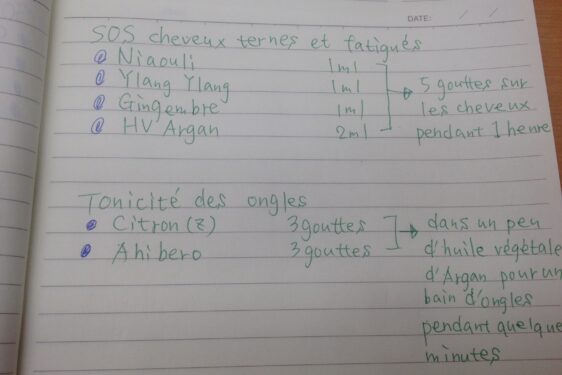 DATE: / /
SOS cheveux ternes et fatigués
Niaouli 1ml
Ylang Ylang 1ml
Gingembre 1ml
HV Argan 2ml
5 gouttes sur
les cheveux
pendant 1 heure
Tonicité des ongles
Citron (Z) 3 gouttes
Ahibero 3 gouttes
dans un peu
d'huile végétale
d'Argan pour un
bain d'ongles
pendant quelque
minutes